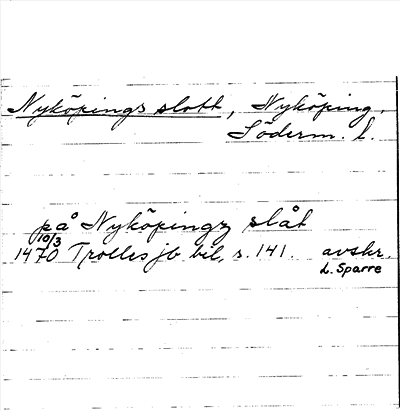 Nyköpings slott, Nyköping,
Söderm. l.
på Nyköpings slåt
10/3
1470 Trolles jb bil, s. 141. avskr.
L. Sparre